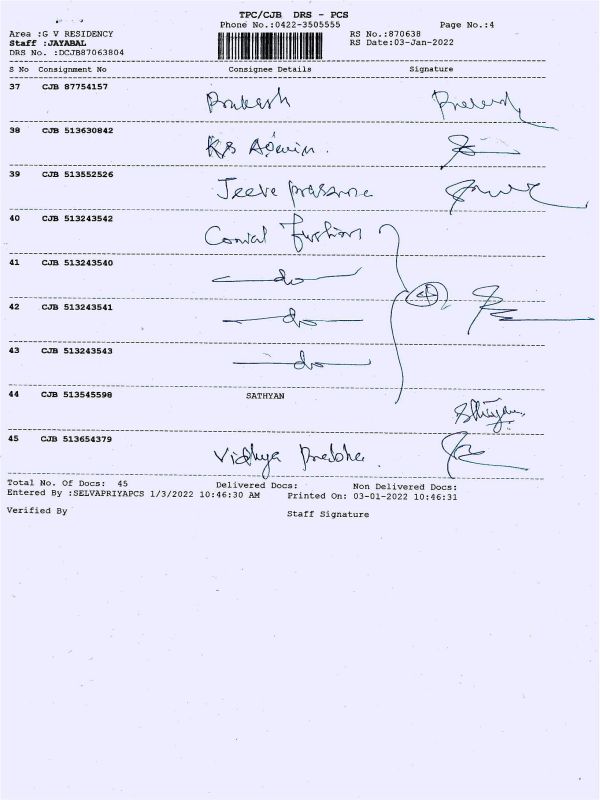 TPC/CJB DRS - PCS
Phone No.:0422-3505555 Page No.:4
Area :G V RESIDENCY RS No.:870638
Staff :JAYABAL RS Date:03-Jan-2022
DRS No. :DCJB87063804
S No Consignment No Consignee Details Signature
37 CJB 87754157 Prakash
38 CJB 513630842 KB
39 CJB 513552526 Jeeva
40 CJB 513243542
41 CJB 513243540 do
42 CJB 513243541 do 4
43 CJB 513243543 do
44 CJB 513545598 SATHYAN
45 CJB 513654379 Vidhya Prabha
Total No. Of Docs: 45 Delivered Docs: Non Delivered Docs:
Entered By :SELVAPRIYAPCS 1/3/2022 10:46:30 AM Printed On: 03-01-2022 10:46:31
Verified By Staff Signature